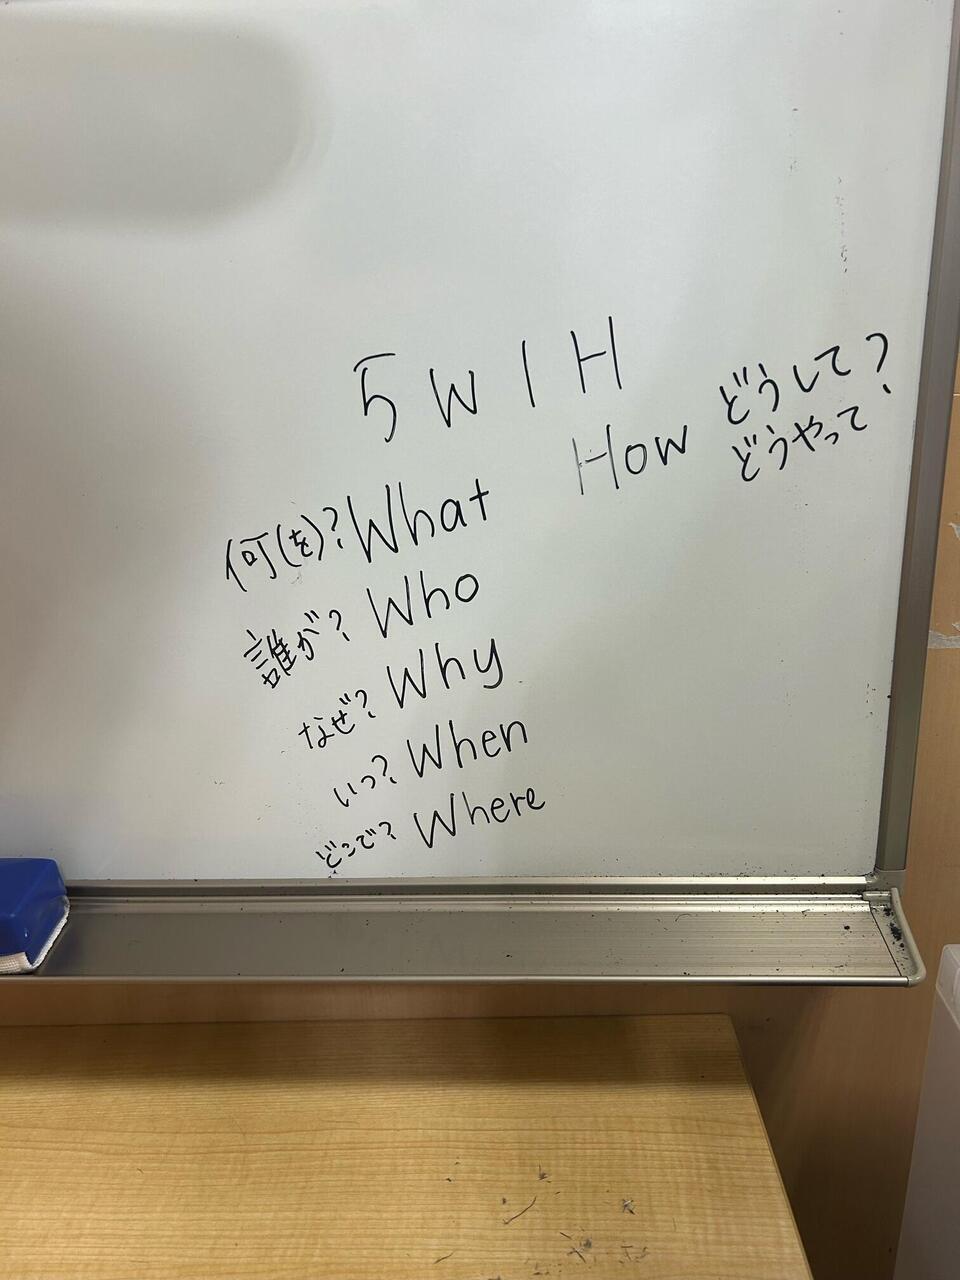 5W1H
How どうして?
どうやって
何(を)? What
誰が? Who
なぜ? Why
いつ? When
どこで? Where